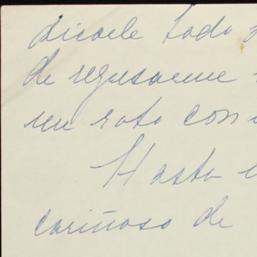 dicarle todo
de regresarme
un rato con
Hasta
cariñoso de